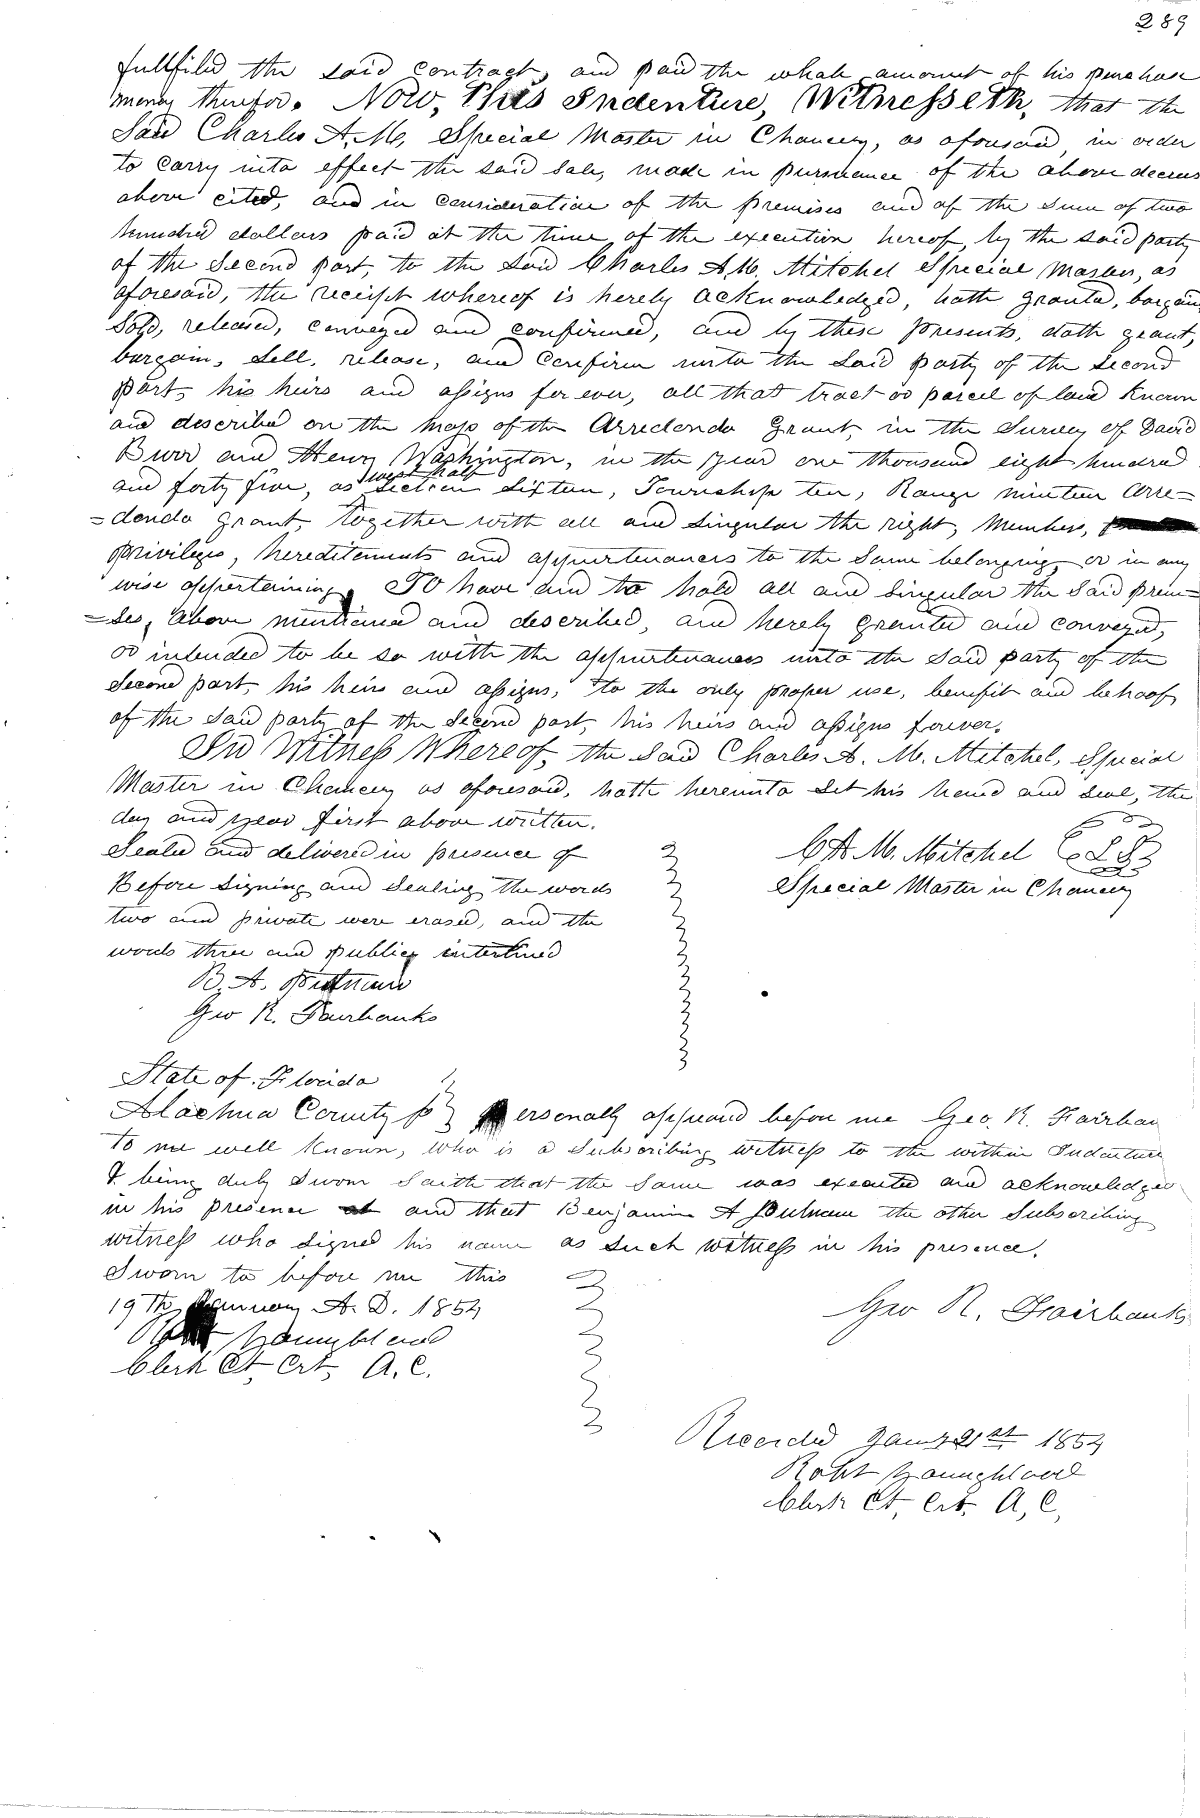 289
fullfiled the said contract, and paid the whole amount of his purchase
money therefor. Now, This Indenture, Witnesseth, that the
Said Charles A. M, Special Master in Chancery, as aforesaid, in order
to carry into effect the said Sale, made in pursuance of the above decrees
above cited, and in consideration of the premises and of the Sum of two
hundred dollars paid at the time of the execution hereof, by the said party
of the Second part, to the Said Charles A. M. Mitchel Special Master, as
aforesaid, the receipt whereof is hereby acknowledged, hath granted, bargain,
Sold, released, conveyed and confirmed, and by these presents, doth grant,
bargain, Sell, release, and Confirm unto the Said party of the Second
part, his heirs and assigns for ever, all that tract or parcel of land Known
and described on the Map of the Arredondo Grant, in the Survey of David
Burr and Henry Washington, in the year one thousand eight hundred
west half
and forty five, as Section Sixteen, Township ten, Range nineteen Arre=
=dondo Grant, together with all and Singular the right, Members,
privileges, hereditements and appurtenances to the Same belonging, or in any
wise appertaining, TO have and to hold all and Singular the Said prem=
=ses, above mentioned and described, and hereby granted and conveyed,
or intended to be so with the appurtenances unto the Said party of the
Second part, his heirs and assigns, to the only proper use, benefit and behoof
of the Said party of the Second part, his heirs and assigns forever.
In Witness Whereof, the Said Charles A. M. Mitchel, Special
Master in Chancery as aforesaid, hath hereunto Set his hand and Seal, the
day and year first above written.
Sealed and delivered in presence of
C A M. Mitchel L S
Before Signing and Sealing the words
Special Master in Chancery
two and private were erased, and the
words three and public interlined
B. A. Putnam
Geo R. Fairbanks
State of Florida
Alachua County ss Personally appeared before me Geo. R. Fairban
to me well Known, who is a Subscribing witness to the within Indenture
& being duly Sworn Saith that the Same was executed and acknowledged
in his presence and that Benjamin A Putnam the other Subscribing
witness who signed his name as such witness in his presence.
Sworn to before me this
19Th January A. D. 1854
Geo R. Fairbanks
Robt Youngblood
Clerk Ct. Crt, A. C.
Recorded Jany 21st 1854
Robt Youngblood
Clerk Ct, Crt. A, C,